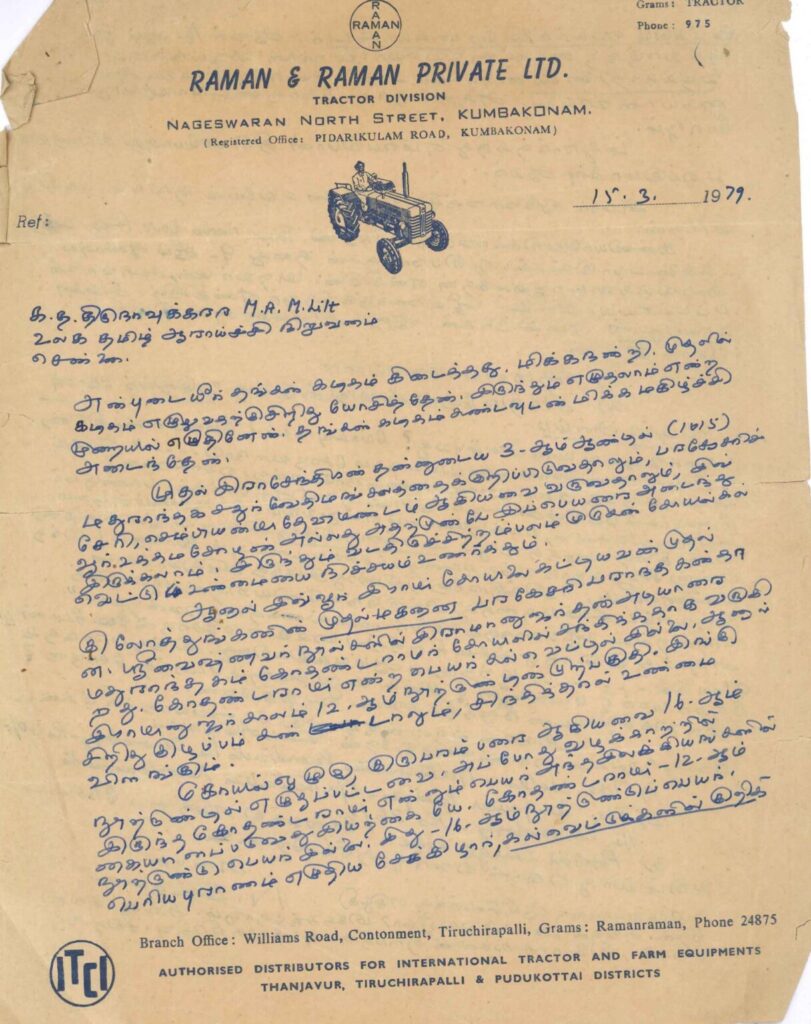 RAMAN
RAMAN
Grams: TRACTOR
Phone: 975
RAMAN & RAMAN PRIVATE LTD.
TRACTOR DIVISION
NAGESWARAN NORTH STREET, KUMBAKONAM.
(Registered Office: PIDARIKULAM ROAD, KUMBAKONAM)
15.3. 1979.
Ref:
க.த. திருநாவுக்கரசு M.A. M.Litt
உலக தமிழ் ஆராய்ச்சி நிறுவனம்
சென்னை.
அன்புடையீர் தங்கள் கடிதம் கிடைத்தது. மிக்க நன்றி. முதலில்
கடிதம் எழுதுவதற்கு சிறிது யோசித்தேன். இருந்தும் எழுதலாம் என்ற
முறையில் எழுதினேன். தங்கள் கடிதம் கண்டவுடன் மிக்க மகிழ்ச்சி
அடைந்தேன்.
முதல் இராசேந்திரன் தன்னுடைய 3-ஆம் ஆண்டில் (1015)
மதுராந்தக சதுர்வேதிமங்கலத்தைக்குறிப்பிடுவதாலும், பரகேசரிச்
சேரி, செம்பியன் மாதேவி ஆகியவை வருவதாலும், இவ்
வூர் உத்தமசோழன் அல்லது இப்பெயரை அடைந்து
இருக்கலாம். இருந்தும் வடதிருச்சிற்றம்பலம் முருகன் கோயில் கல்
வெட்டு உண்மையை நிச்சயம் உணர்த்தும்.
ஆனால் இவ்வூர் இராமர் கோயிலை கட்டியவன் முதல்
குலோத்துங்கனின் முதல் மகனான பரகேசரி பராந்தகன் தா
ன். ஸ்ரீவைஷ்ணவர் நூல்களில் இராமானுஜர் தன் அடியாரை
மதுராந்தகம் கோதண்டராமர் கோயிலில் சந்தித்ததாக வருகி
றது. கோதண்டராமர் என்ற பெயர் கல்வெட்டில் இல்லை. ஆனால்
இராமானுஜர் காலம் 12-ஆம் நூற்றாண்டின் முற்பகுதி. இங்கு
சிறிது குழப்பம் கண்டாலும், சிந்தித்தால் உண்மை
விளங்கும்.
கோயிலொழுகு, குருபரம்பரை ஆகியவை 16-ஆம்
நூற்றாண்டில் எழுதப்பட்டவை. அப்போது வழக்காற்றில்
இருந்த கோதண்டராமர் என்னும் பெயர் அந்த இலக்கியங்களில்
கையாளப்படுவது இயற்கையே. கோதண்டராமர் - 12-ஆம்
நூற்றாண்டு பெயர் இல்லை. இது - 16-ஆம் நூற்றாண்டுப் பெயர்.
பெரியபுராணம் எழுதிய சேக்கிழார், கல்வெட்டுக்களின்
Branch Office: Williams Road, Contonment, Tiruchirapalli, Grams: Ramanraman, Phone 24875
ITCI
AUTHORISED DISTRIBUTORS FOR INTERNATIONAL TRACTOR AND FARM EQUIPMENTS
THANJAVUR, TIRUCHIRAPALLI & PUDUKOTTAI DISTRICTS